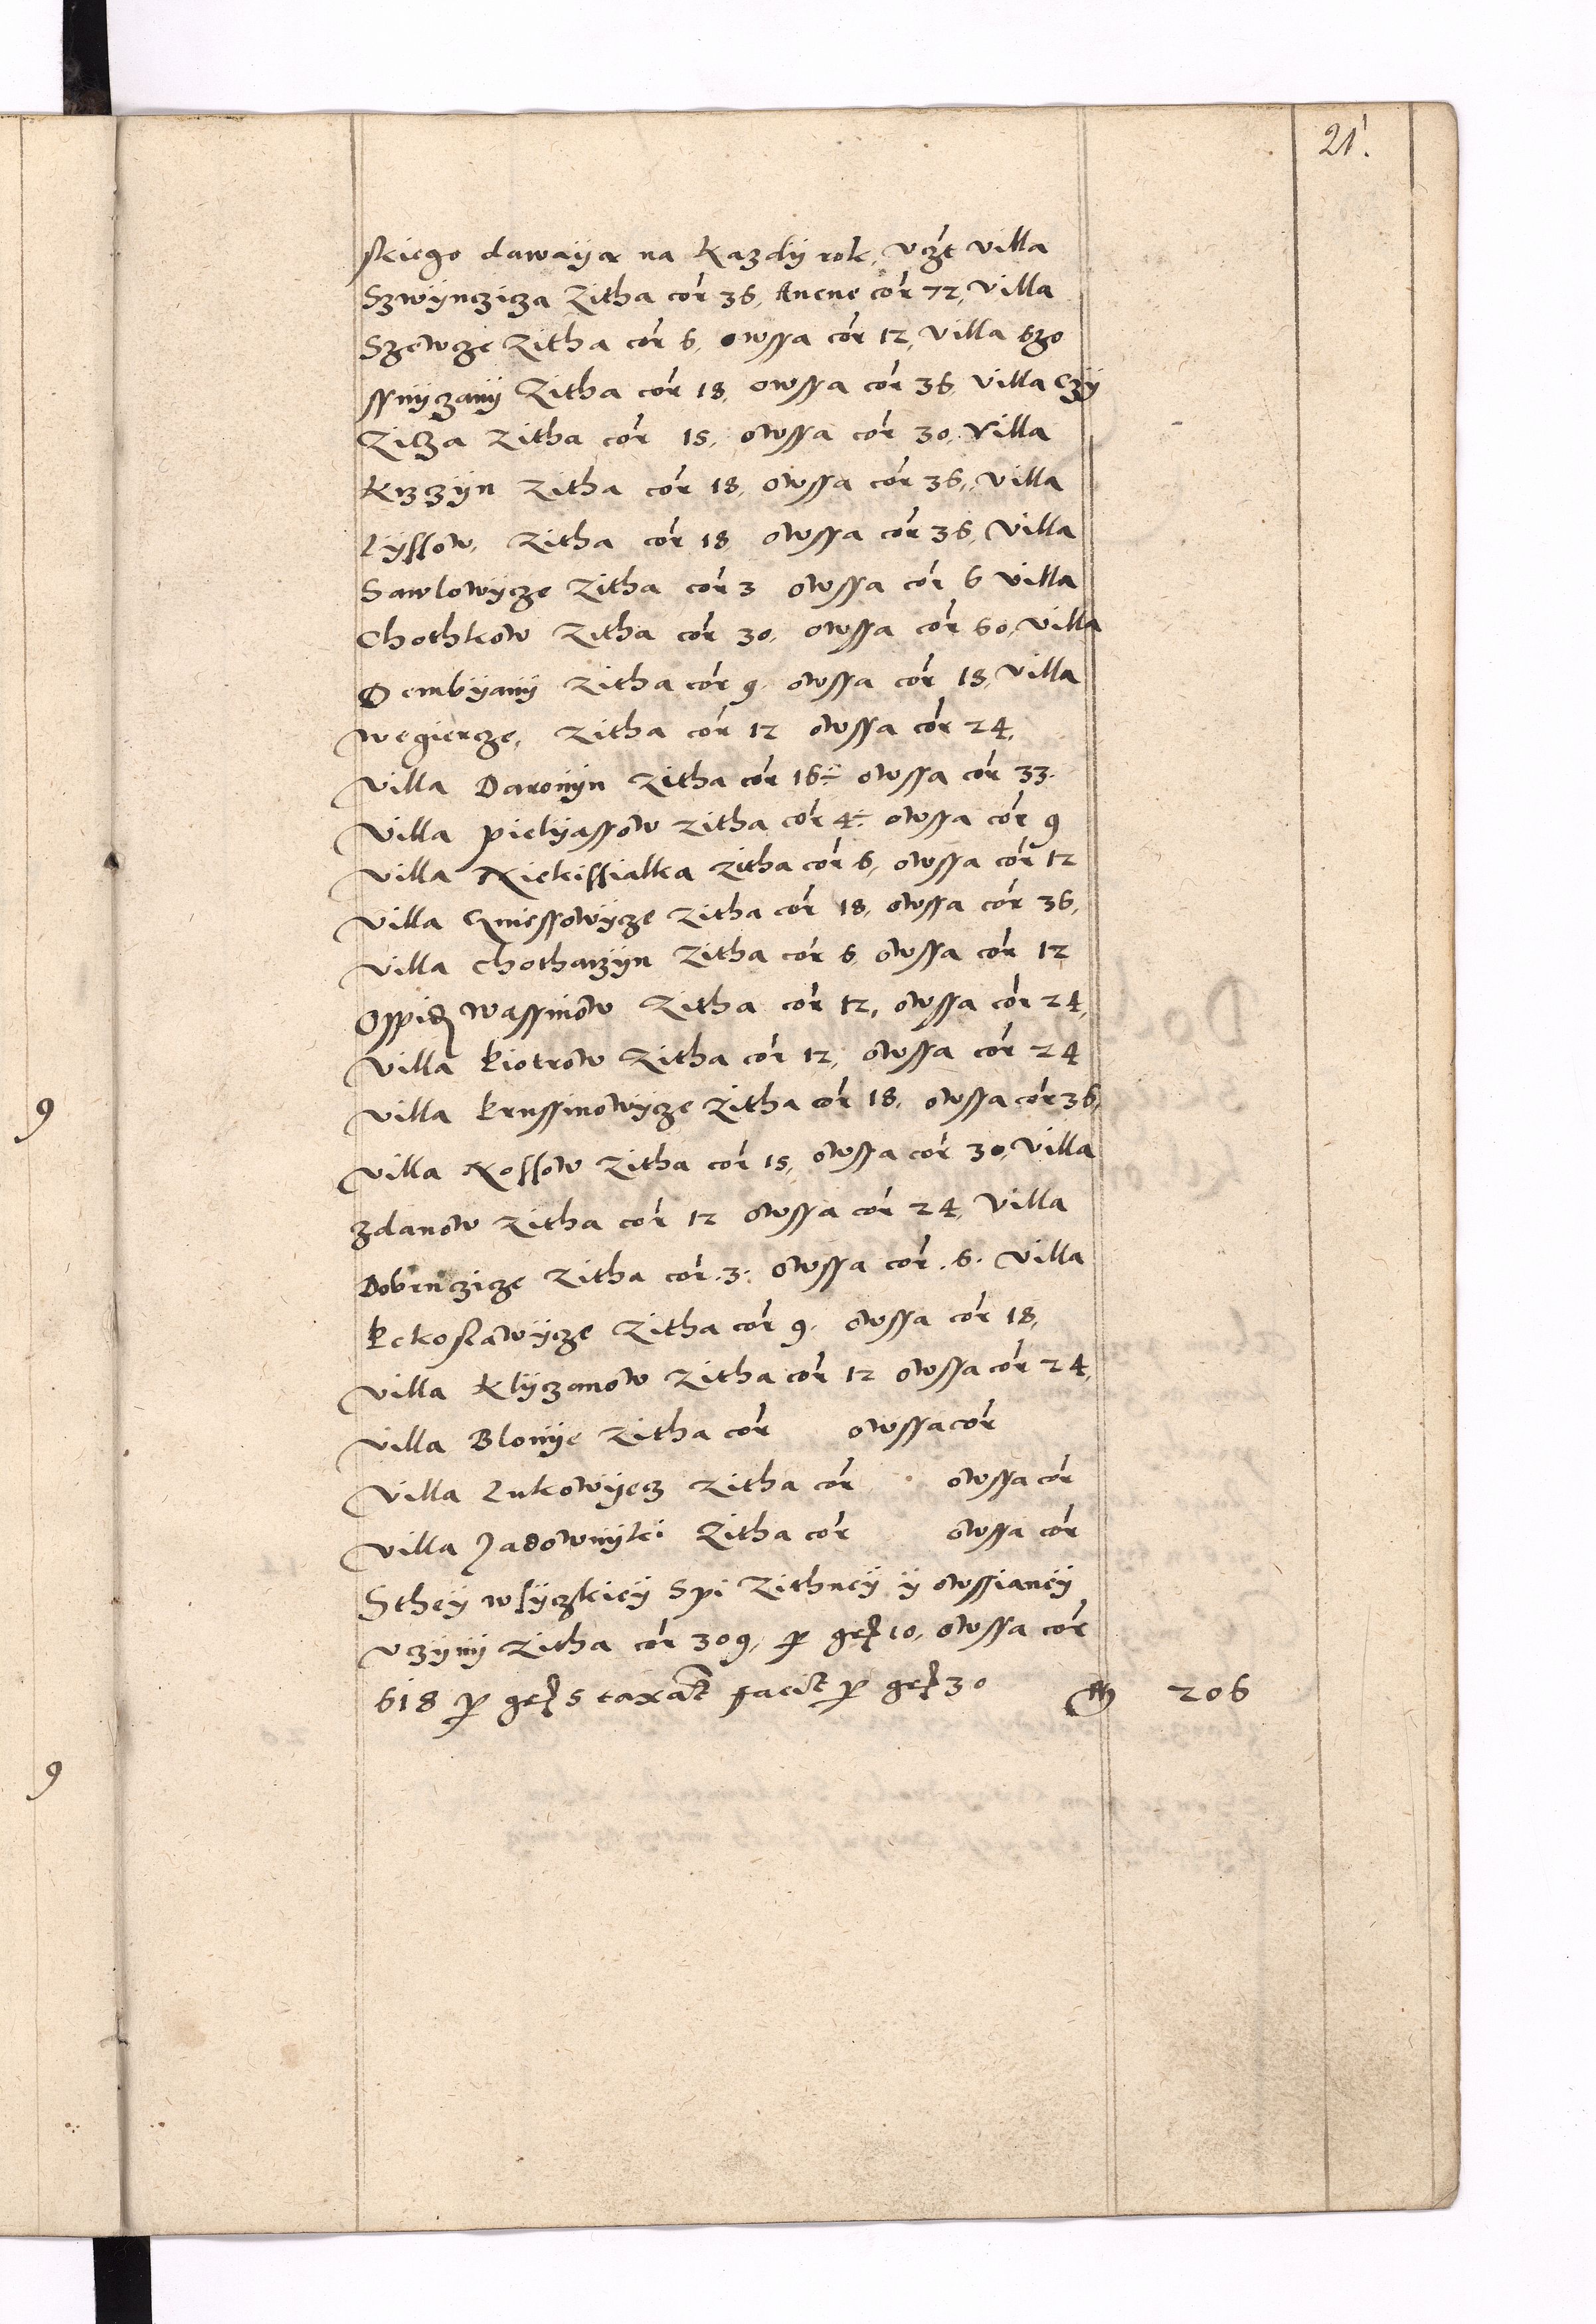 21.
skiego dawaÿa na Kazdÿ rok, vczt villa
Szwÿnczicza Zitha cor 36, Auene cor 72, villa
Szewcze Zitha cor 6, owssa cor 12, villa Szo
ssnÿczanÿ Zitha cor 18, owssa cor 36, villa Czÿ
Zicza Zitha cor 15, owssa cor 30, Villa
Krzczÿn Zitha cor 18, owssa cor 36, villa
Lÿssow, Zitha cor 18, owssa cor 36, Villa
Sawlowÿcze Zitha cor 3 owssa cor 6 villa
Chothkow Zitha cor 30, owssa cor 60, villa
Dembÿanÿ Zitha cor 9, owssa cor 18, villa
Wegiercze, Zitha cor 12 owssa cor 24,
villa Daronÿn Zitha cor 16÷ owssa cor 33.
Villa Pielÿassow Zitha cor 4÷ owssa cor 9
villa Niekissialka Zitha cor 6, owssa cor 12
villa Gniessowÿcze Zitha cor 18, owssa cor 36,
villa Chotharzÿn Zitha cor 6 owssa cor 12
Oppid Wassniow Zitha cor 12, owssa cor 24,
villa Kiotrow Zitha cor 12, owssa cor 24
villa Krussinowÿcze Zitha cor 18, owssa cor 36,
villa Kossow Zitha cor 15, owssa cor 30, Villa
Zdanow Zitha cor 12 owssa cor 24, Villa
Dobrnczicze Zitha cor .3. owssa cor .6. villa
Kokoslawÿcze Zitha cor 9, owssa cor 18,
villa Klÿczanow Zitha cor 12 owssa cor 24,
villa Blonÿe Zitha cor owssa cor
villa Lukowÿecz Zitha cor owssa cor
villa Jadownÿki Zitha cor owssa cor
Stheÿ wslÿczkieÿ Spi Zithneÿ ÿ owssianeÿ
vczÿnÿ Zitha cor 309, per gr 10, owssa cor
618 per gr 5 taxat facit per gr 30 206
9
9